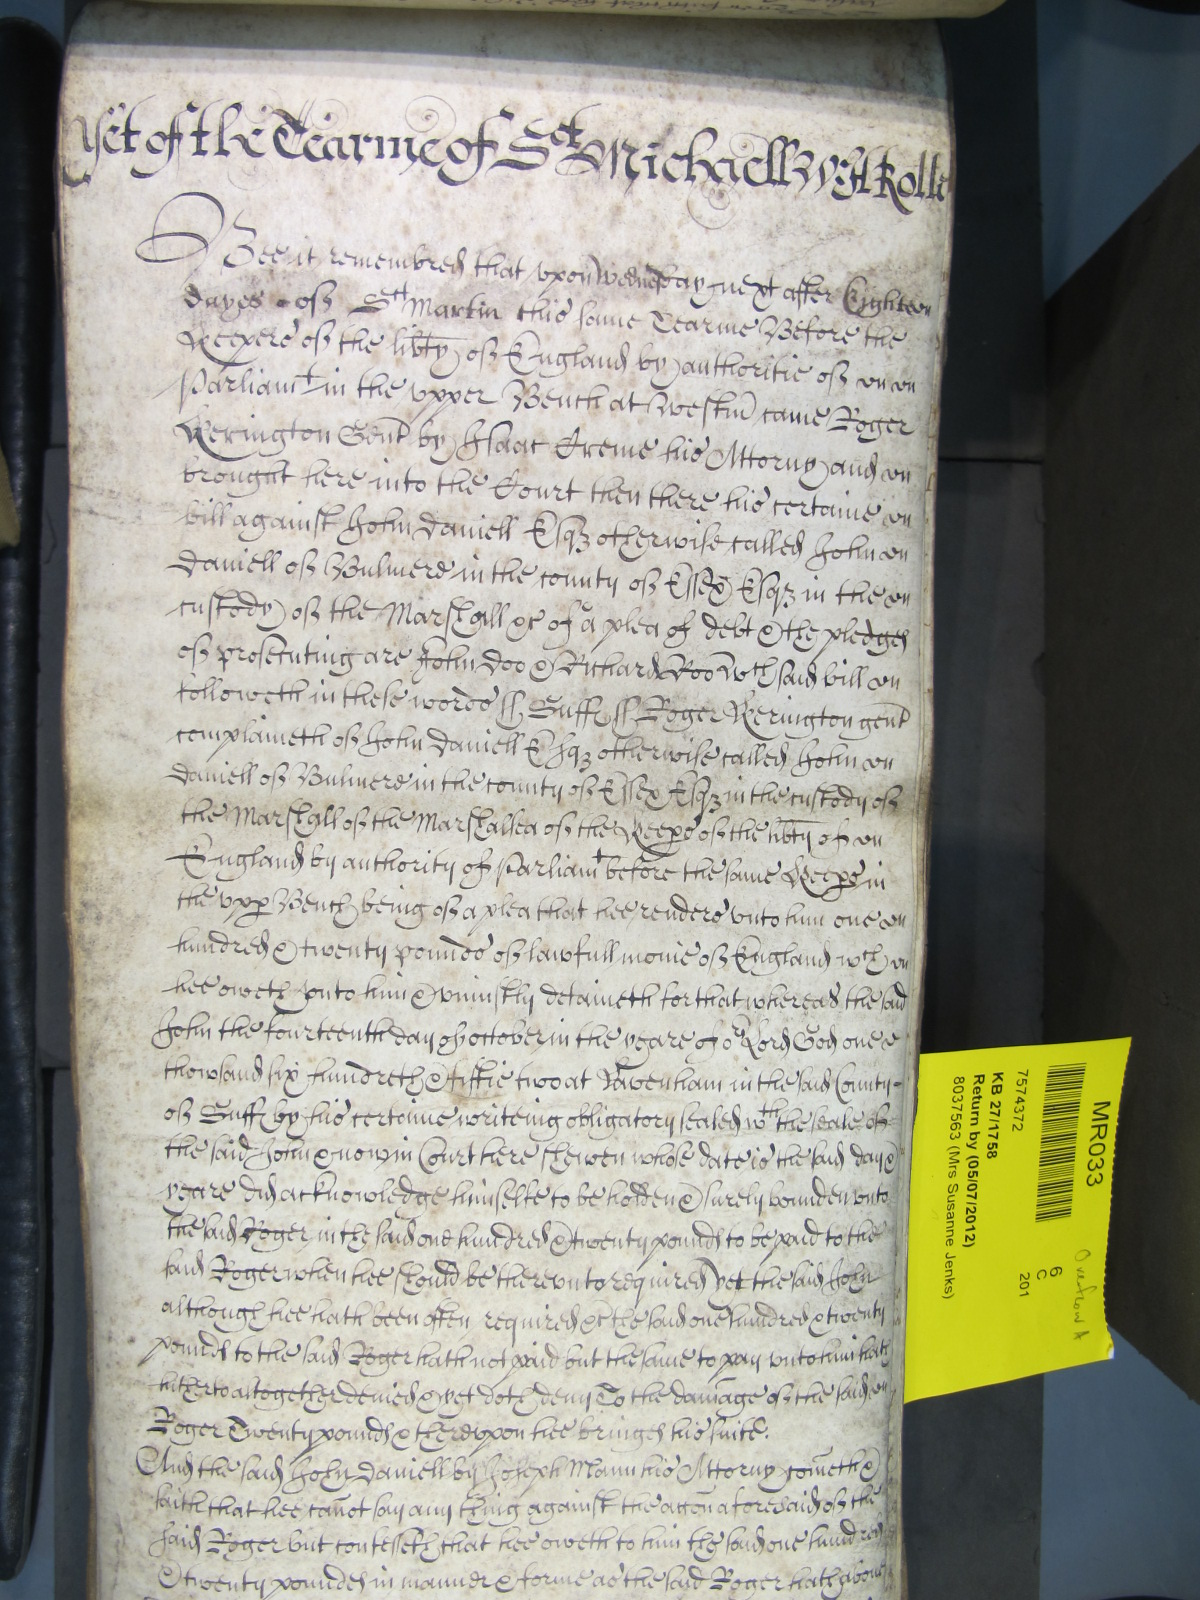 Yet of the Tearme of Sct Michaell Wth Rolle
Bee it remembred that upon Wednesday next after Eighteen
dayes of St Martin this same Tearme Before the
Keepers of the libty of England by authoritie of
Parliamt in the upper Bench at Westm came Roger
Kerington Gent by Isaac Creme his Attorny and
brought here into the Court then there his certaine
bill against John Daniell Esqz otherwise called John
Daniell of Bulmere in the county of Essex Esqz in the
custody of the Marshall &c of a plea of debt & the pledges
of prosecuting are John Doo & Richard Roo wch said bill
followeth in these words ss Suff ss Roger Kerington gent
complaineth of John Daniell Esqz otherwise called John
Daniell of Bulmere in the county of Essex Esqz in the custody of
the Marshall of the Marshalsea of the Keeps of the libty of
England by authority of Parliamt before the same Keeps in
the upp Bench being of a plea that hee renders unto him one
hundred & twenty pounds of lawfull monie of England wch
hee oweth unto him & uniustly detaineth for that whereas the said
John the fourteenth day of October in the yeare of or Lord God one
thowsand six hundreth & fiftie two at Lavenham in the said County
of Suff by his certaine writeing obligatory sealed wth the seale of
the said John & now in Court here shewen whose date is the said day &
yeare did acknowledge himselfe to be holden & surely bounden unto
the said Roger in the said one hundred & twenty pounds to be paid to the
said Roger when hee should be thereunto required yet the said John
although hee hath been often required &c the said one hundred & twenty
pounds to the said Roger hath not paid but the same to pay unto him hath
hitherto altogether denied & yet doth deny To the damage of the said
Roger Twenty pounds & thereupon hee bringes his suite.
And the said John Daniell by Joseph Mann his Attorny cometh &
saith that hee canot say any thing against the acon aforesaid of the
said Roger but confesseth that hee oweth to him the said one hundred
& twenty pounds in manner & forme as the said Roger hath above
MR033
6
C
201
7574372
KB 27/1758
Return by (05/07/2012)
8037563 (Mrs Susanne Jenks)